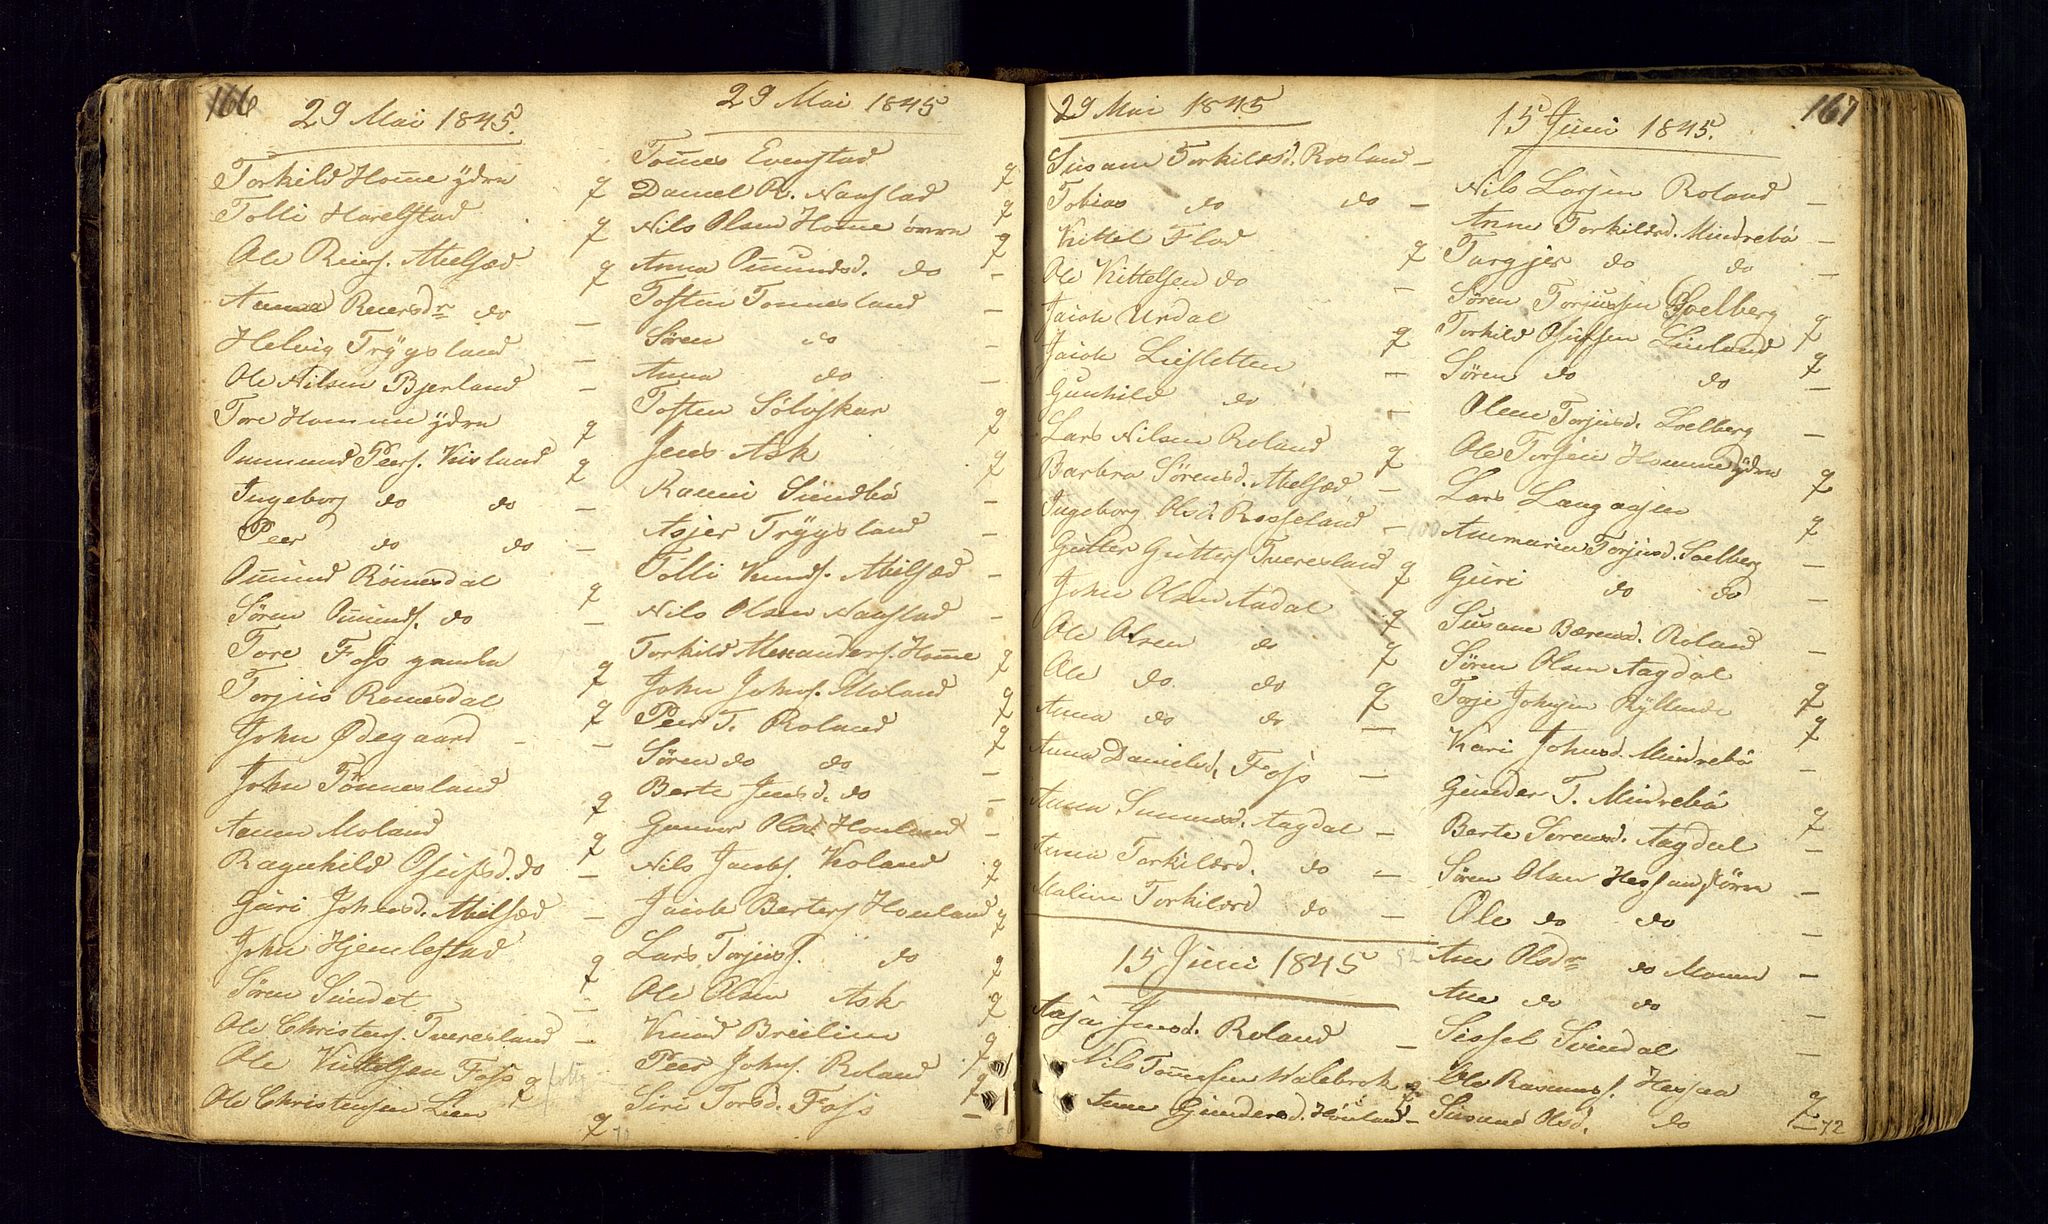 166
29 Mai 1845.
Torkild Home ydra g
Tolli Harelstad g
Ole Reiers. Mielsæd g
Anna Reiersdr do –
Helvig Trÿgsland –
Ole Nilsen Bjerland –
Tore Homme ydra g
Ommund Peers. Kisland g
Ingeborg do do –
Peer do do –
Omund Römesdal g
Sören Omunds. do –
Tore Foss gamla g
Torjus Romesdal g
John Ødegaard – –
John Tønnesland g
Aanen Moland g
Ragnhild Oseifsd. do –
Guri Johnsd. Mielsæd –
John Hjemlestad g
Sören Sundet –
Ole Christens. Tveresland –
Ole Kittelsen Foss g
Ole Christensen Lien g
29 Mai 1845
Tönnes Evenstad g
Daniel R. Naastad g
Nils Olsen Home övra g
Anna Omundsd. do –
Tosten Tonnesland –
Sören do –
Anna do –
Tosten Sölvskar g
Jens Ask g
Ranni Sundbö –
Asjer Trÿgsland –
Tolli Knuds. Mielsæd –
Nils Olsen Naastad –
Torkild Alexanders. Home g
John Johns. Moland g
Peer T. Roland g
Sören do do –
Berte Jensd. do –
Gunvor Olsd. Honland –
Nils Jacobs. Roland g
Jacob Berters. Honland g
Lars Torjuss. do g
Ole Olsen Ask g
Knud Breilien g
Peer Johns. Roland g
Siri Torsd. Foss –
29 Mai 1845
Susane Torkildsd. Rosland –
Tobias do do –
Kittel Flad g
Ole Kittelsen do –
Jacob Urdal g
Jacob Liesletten –
Gunhild do –
Lars Nilsen Roland g
Barbra Sörensd. Mielsæd –
Ingeborg Olsd. Rosseland –
Gutter Gutters. Tveresland g
John Olsen Aadal g
Ole Olsen do g
Ole do do g
Anna do do –
Anna Danielsd. Foss –
Anna Sunnesd. Aagdal –
Anna Torkildsd. do –
Maline Torkildsd do –
15 Juni 1845
Aasa Jensd. Roland –
Nils Tönnessen Walebrok g
Anne Gundersd. Honland –
167
15 Juni 1845.
Nils Larsen Roland –
Anne Torkildsd. Mindrebö –
Targjer do do –
Sören Torjussen Solberg g
Torkild Oseifsen Lieland g
Sören do do –
Olene Torjusd. Solberg –
Ole Torjsen Homme ydra g
Lars Langaasen g
Annmarie Torjusd. Solberg –
Guri do do –
Susane Bærensd. Roland –
Sören Olsen Aagdal g
Terje Johnsen Rÿllende g
Kari Johnsd. Mindrebö –
Gunder T. Mindrebö g
Berte Sörensd. Aagdal –
Sören Olsen Hessaa, övra –
Ole do do –
Ane Olsdr do Monen –
Ane do do –
Sissel Svindal –
Ole Rasmuss. Hessaa g
Susane Olsd. do –
72